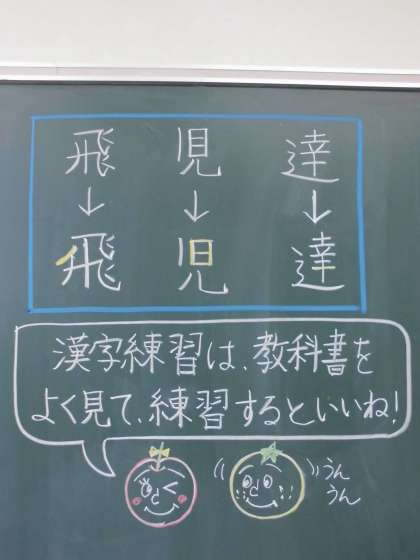 飛 児 達
↓ ↓ ↓
飛 児 達
漢字練習は、教科書を
よく見て、練習するといいね!
うん
うん